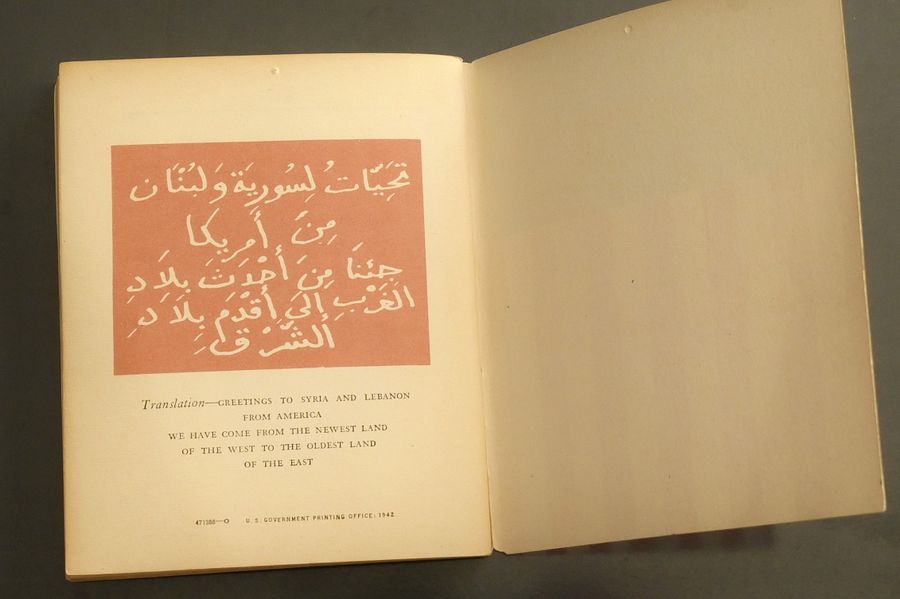 تَحِيَّات لِسُورِيَة وَلُبْنَان
مِنَ أَمريكا
جِئنَا مِنَ أَحْدَثَ بلَادِ
الغَرْبِ إلىَ أَقْدَمِ بِلَادِ
ألشَّرْقِ
Translation—GREETINGS TO SYRIA AND LEBANON
FROM AMERICA
WE HAVE COME FROM THE NEWEST LAND
OF THE WEST TO THE OLDEST LAND
OF THE EAST
471388—O U. S. GOVERNMENT PRINTING OFFICE: 1942